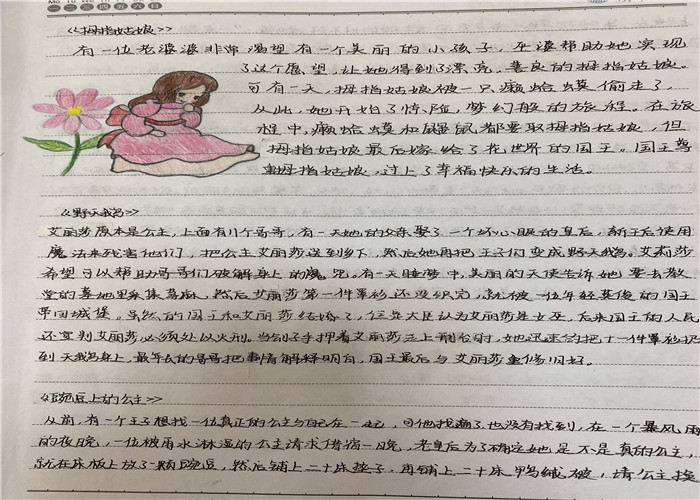 一 二 三 四 五 六 日
《拇指姑娘》
有一位老婆婆非常渴望有一个美丽的小孩子，巫婆帮助她实现
了这个愿望，让她得到了漂亮，善良的拇指姑娘。
可有一天，拇指姑娘被一只癞蛤蟆偷走了，
从此，她开始了惊险，梦幻般的旅程。在旅
程中，癞蛤蟆和鼹鼠都要娶拇指姑娘，但
拇指姑娘最后嫁给了花世界的国王。国王
拇指姑娘，过上了幸福快乐的生活。
《野天鹅》
艾丽莎原本是公主，上面有11个哥哥，有一天她的父亲娶了一个坏心眼的皇后，新王后使用
魔法来残害他们，把公主艾丽莎送到乡下，然后她再把王子们变成野天鹅。艾莉莎
希望可以帮助哥哥们破解身上的魔咒。有一天睡梦中，美丽的天使告诉她要去教
堂的墓地里采集荨麻，然后艾丽莎第一件罩衫还没织完，就被一位年轻英俊的国王
带回城堡。虽然的国王和艾丽莎结婚了，但是大臣认为艾丽莎是女巫，后来国王的人民
还宣判艾丽莎必须处以火刑。当刽子手押着艾丽莎走上刑台时，她迅速的把十一件罩衫抛
到天鹅身上，最年长的哥哥把事情解释明白，国王最后与艾丽莎重修旧好。
《豌豆上的公主》
从前，有一个王子想找一位真正的公主与自己在一起，可他找遍了也没有找到，在一个暴风雨
的夜晚，一位被雨水淋湿的公主请求借宿一晚，老皇后为了确定她是不是真的公主，
就在床板上放了一颗豌豆，然后铺上二十床垫子，再铺上二十床鸭绒被，请公主换